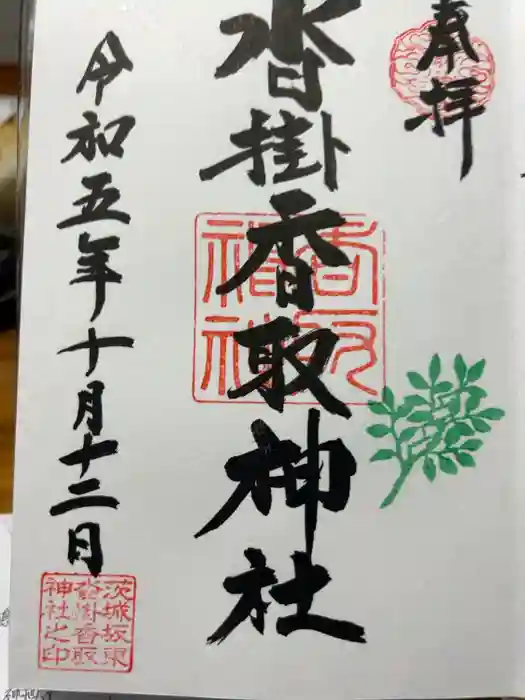 奉拝
沓掛香取神社
香取
神社
令和五年十月十二日
茨城坂東
沓掛香取
神社之印